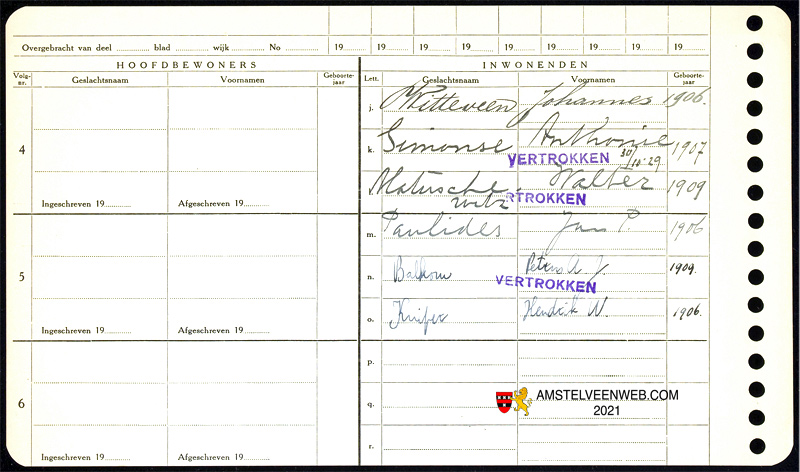 Overgebracht van deel blad wijk No 19 19 19 19 19 19 19 19 19
HOOFDBEWONERS INWONENDEN
Volg-nr. Geslachtsnaam Voornamen Geboorte-jaar Lett. Geslachtsnaam Voornamen Geboorte-jaar
j. Witteveen Johannes 1906.
4 k. Simonse Anthonie 1907
VERTROKKEN 30/10-29
l. Matusche- Walter 1909
witz RTROKKEN
Ingeschreven 19 Afgeschreven 19
m. Paulides Jan P. 1906
5 n. Balkom Petrus A. J. 1909.
VERTROKKEN
o. Kuiper Hendrik W. 1906.
Ingeschreven 19 Afgeschreven 19
p.
6 q. AMSTELVEENWEB.COM
2021
r.
Ingeschreven 19 Afgeschreven 19